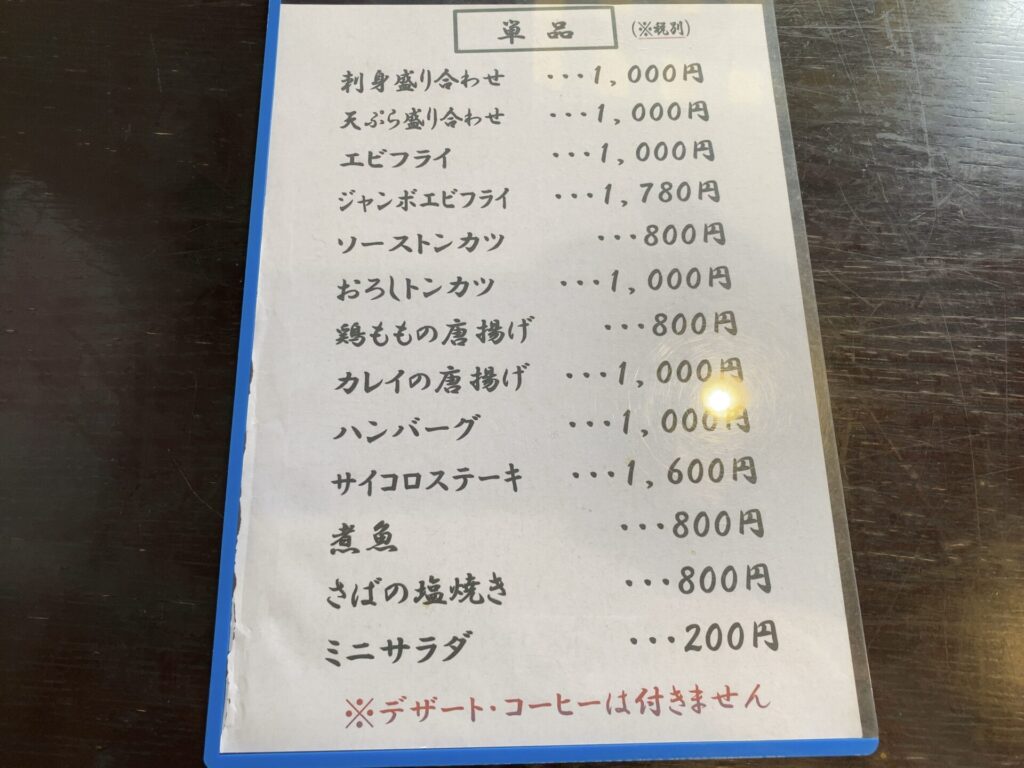 単品 (※税別)
刺身盛り合わせ ・・・1,000円
天ぷら盛り合わせ ・・・1,000円
エビフライ ・・・1,000円
ジャンボエビフライ ・・・1,780円
ソーストンカツ ・・・800円
おろしトンカツ ・・・1,000円
鶏ももの唐揚げ ・・・800円
カレイの唐揚げ ・・・1,000円
ハンバーグ ・・・1,000円
サイコロステーキ ・・・1,600円
煮魚 ・・・800円
さばの塩焼き ・・・800円
ミニサラダ ・・・200円
※デザート・コーヒーは付きません